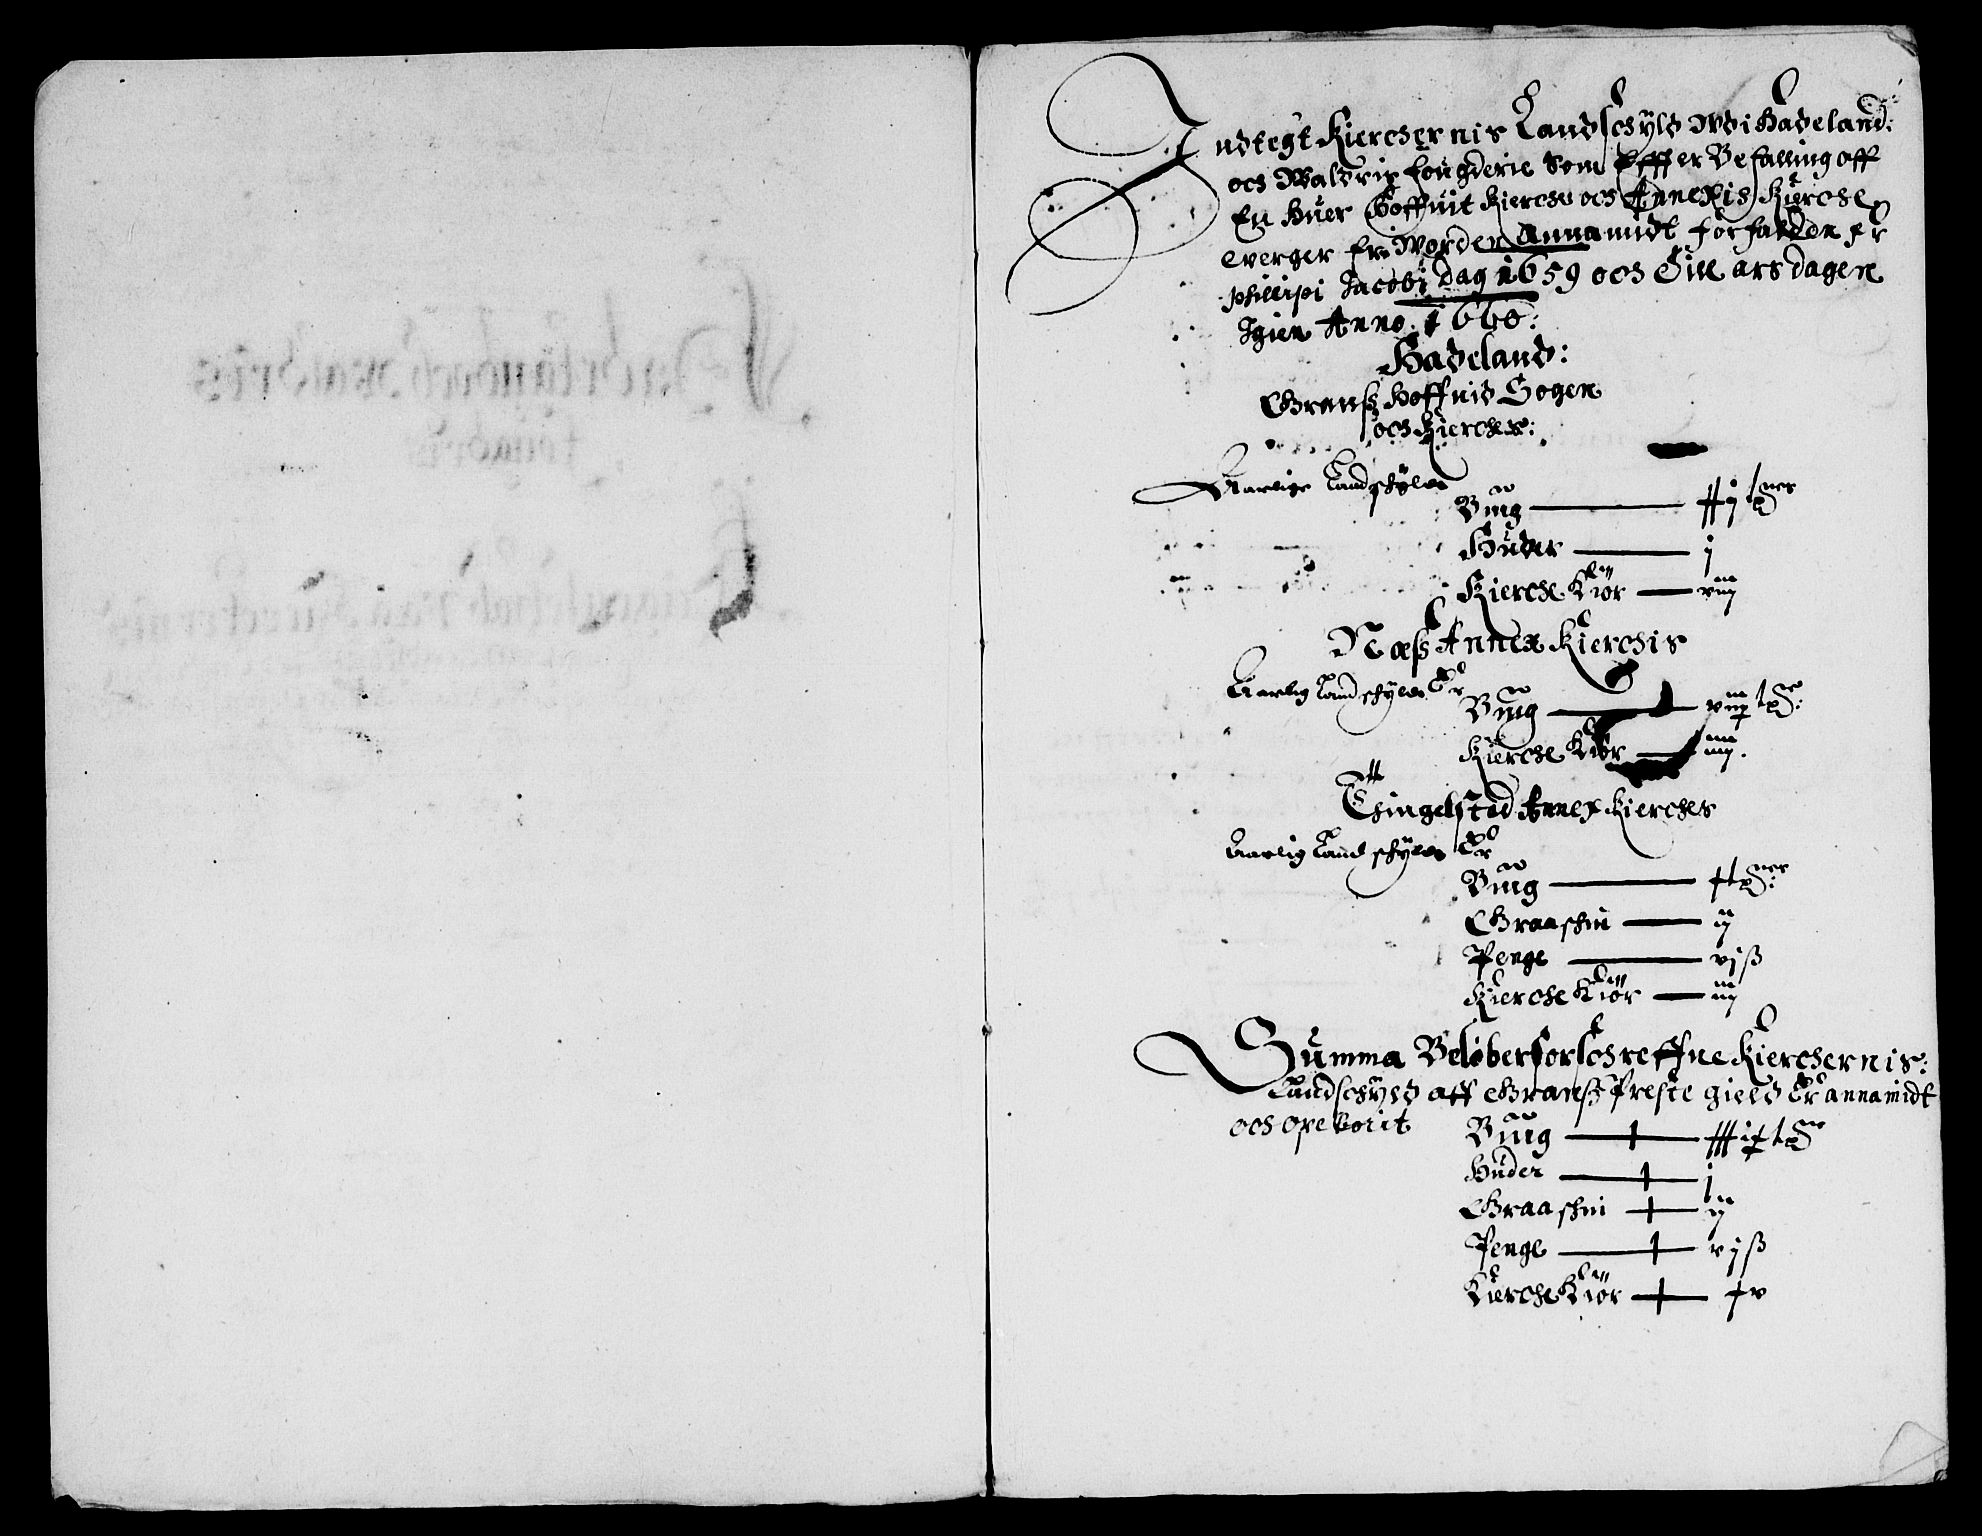 Indtegt Kierchernis Landschyld Wdi Hadeland:
och Waldris fougderie Som Effter Befalling aff
En huer Hoffuit Kierche och Annexis Kierche
werger er Worden Annamidt forfalden fr
phillipi Jacobi dag 1659 och Till ars dagen
Igien Anno 1660:
Hadeland:
Granß Hoffuid Sogen
och Kierche:
Aarlige Landschyld
Biug — xxij tner
Huder — j
Kierche Kiør — viij
Næß Annex Kierchis
Aarlig Landschyld Er
Biug — viij½ tr:
Kierche Kiør — iiij.
Thingelsted Annex Kierches
Aarlig Landschyld Er
Biug — x tner:
Graaschin — ij
Penge — vj ß
Kierche Kiør — iij
Summa Beløber forschreffne Kierchernis:
Landschyld aff Granß Preste gield Er annamidt
och opeborit
Biug — tr
Huder — j
Graaschin — ij
Penge — vj ß
Kierche Kiør — xv